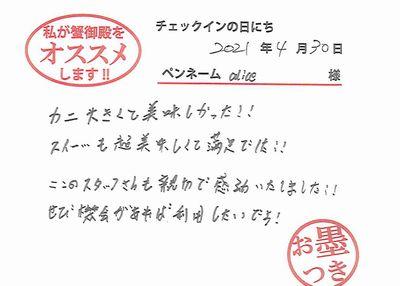 私が蟹御殿を
オススメ
します!!
チェックインの日にち
2021 年 4 月 30 日
ペンネーム alice 様
カニ 大きくて美味しかった!!
スイーツも超美味しくて満足です!!
ここのスタッフさんも親切で感動いたしました!!
ぜひ機会があれば利用したいです!
お墨
つき